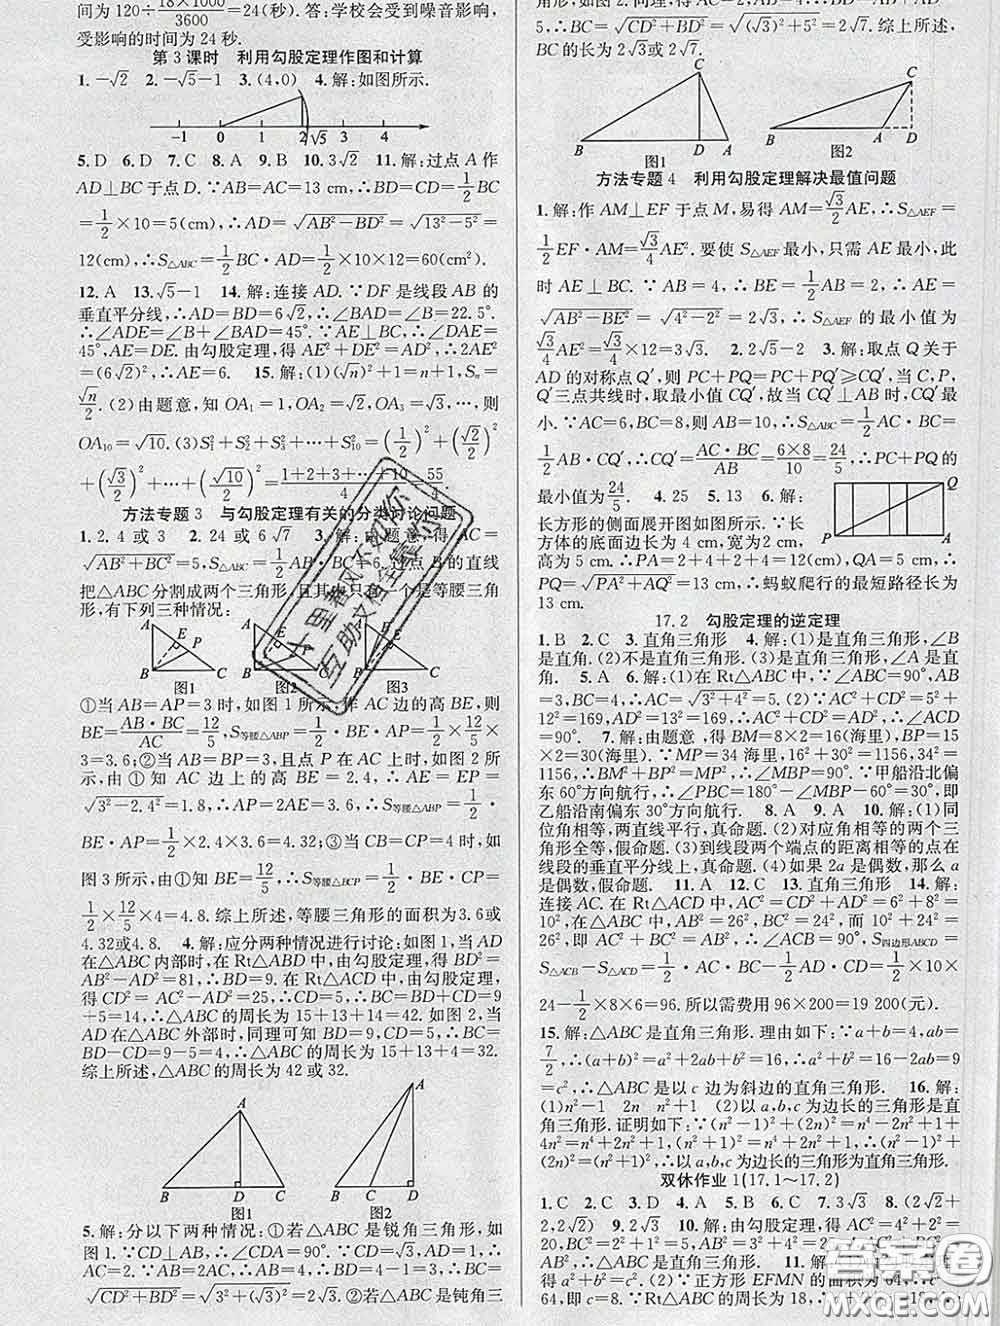 间为120÷18×1000/3600=24(秒). 答:学校会受到噪音影响,
受影响的时间为 24 秒.
第 3 课时　利用勾股定理作图和计算
1. -√2　2. -√5-1　3. (4,0)　4. 解:如图所示.
-1 0 1 2 √5 3 4
5. D　6. D　7. C　8. A　9. B　10. 3√2　11. 解:过点 A 作
AD⊥BC 于点 D. ∵AB=AC=13 cm,∴BD=CD=1/2BC=
1/2×10=5(cm),∴AD=√(AB²-BD²)=√(13²-5²)=
12(cm),∴S△ABC=1/2BC·AD=1/2×10×12=60(cm²).
12. A　13. √5-1　14. 解:连接 AD. ∵DF 是线段 AB 的
垂直平分线,∴AD=BD=6√2,∴∠BAD=∠B=22.5°.
∴∠ADE=∠B+∠BAD=45°. ∵AE⊥BC,∴∠DAE=
45°,AE=DE. 由勾股定理,得 AE²+DE²=AD²,∴2AE²=
(6√2)²,∴AE=6.　15. 解:(1)(√n)²+1=n+1,Sₙ=
√n/2. (2)由题意,知 OA₁=1,OA₂=√2,OA₃=√3,…,则
OA₁₀=√10. (3)S₁²+S₂²+S₃²+…+S₁₀²=(1/2)²+(√2/2)²+
(√3/2)²+…+(√10/2)²=(1+2+3+…+10)/4=55/4.
方法专题 3　与勾股定理有关的分类讨论问题
1. 2,4 或 3　2. 24 或 6√7　3. 解:由题意,得 AC=
√(AB²+BC²)=5,S△ABC= 过点 B 的直线
把△ABC 分割成两个三角形,且其 只有一个是等腰三角
形,有下列三种情况:
A E P B C 图1
A E P B C 图2
A P B C 图3
①当 AB=AP=3 时,如图 1 所示. 作 AC 边的高 BE,则
BE=AB·BC/AC=12/5,S等腰△ABP=1/2·BE·AP=1/2×12/5
×3=3.6;②当 AB=BP=3,且点 P 在 AC 上时,如图 2 所
示. 由①知 AC 边上的高 BE=2.4,∴AE=EP=
√(3²-2.4²)=1.8,∴AP=2AE=3.6,∴S等腰△ABP=1/2·
BE·AP=1/2×2.4×3.6=4.32;③当 CB=CP=4 时,如
图 3 所示,由①知 BE=12/5,∴S等腰△BCP=1/2·CP·BE=
1/2×12/5×4=4.8. 综上所述,等腰三角形的面积为 3.6 或
4.32 或 4.8.　4. 解:应分两种情况进行讨论:如图 1,当 AD
在△ABC 内部时,在 Rt△ABD 中,由勾股定理,得 BD²=
AB²-AD²=81,∴BD=9. 在 Rt△ACD 中,由勾股定理,
得 CD²=AC²-AD²=25,∴CD=5,∴BC=BD+CD=9
+5=14,∴△ABC 的周长为 15+13+14=42. 如图 2,当
AD 在△ABC 外部时,同理可知 BD=9,CD=5,∴BC=
BD-CD=9-5=4,∴△ABC 的周长为 15+13+4=32.
综上所述,△ABC 的周长为 42 或 32.
A B D C 图1
A B C D 图2
5. 解:分以下两种情况:①若△ABC 是锐角三角形,如
图 1. ∵CD⊥AB,∴∠CDA=90°. ∵CD=√3,∴AD=1,∴
AC=2. ∵AB=2AC,∴AB=4,∴BD=4-1=3,∴BC=
√(CD²+BD²)=√(3²+(√3)²)=2√3. ②若△ABC 是钝角三
角形,如图 2. 同理,BC=√(CD²+BD²)=2√7. 综上所述,
BC 的长为 2√3或 2√7.
C B D A 图1
C B A D 图2
方法专题 4　利用勾股定理解决最值问题
1. 解:作 AM⊥EF 于点 M,易得 AM=√3/2AE,∴S△AEF=
1/2EF·AM=√3/4AE². 要使 S△AEF 最小,只需 AE 最小,此
时 AE⊥BC. ∵AB=4,∴BE=1/2AB=2,∴AE=
√(AB²-BE²)=√(4²-2²)=2√3,∴S△AEF 的最小值为
√3/4AE²=√3/4×12=3√3.　2. 2√5-2　3. 解:取点 Q 关于
AD 的对称点 Q′,则 PC+PQ=PC+PQ′⩾CQ′,当 C,P,
Q′三点共线时,取最小值 CQ′,故当 CQ′⊥AB 时,CQ′最
小. ∵AC=6,BC=8,则 AB=10,∴S△ABC=1/2AC·BC=
1/2AB·CQ′,∴CQ′=AC·BC/AB=6×8/10=24/5,∴PC+PQ 的
最小值为24/5.　4. 25　5. 13　6. 解:
长方形的侧面展开图如图所示. ∵长
方体的底面边长为 4 cm,宽为 2 cm.
高为 5 cm. ∴PA=4+2+4+2=12(cm),QA=5 cm,∴
PQ=√(PA²+AQ²)=13 cm,∴蚂蚁爬行的最短路径长为
13 cm.
Q P A
17.2　勾股定理的逆定理
1. B　2. C　3. 直角三角形　4. 解:(1)是直角三角形,∠B
是直角. (2)不是直角三角形. (3)是直角三角形,∠A 是直
角.　5. A　6. 解:(1)在 Rt△ABC 中,∵∠ABC=90°,AB
=3,BC=4,∴AC=√(3²+4²)=5. (2)∵AC²+CD²=5²+
12²=169,AD²=13²=169,∴AC²+CD²=AD²,∴∠ACD
=90°.　7. 解:由题意,得 BM=8×2=16(海里),BP=15
×2=30(海里),MP=34 海里,16²+30²=1156,34²=
1156,∴BM²+BP²=MP²,∴∠MBP=90°. ∵甲船沿北偏
东 30°方向航行,∴∠PBC=180°-∠MBP-60°=30°,即
乙船沿南偏东 30°方向航行.　8. A　9. A　10. 解:(1)同
位角相等,两直线平行,真命题. (2)对应角相等的两个三
角形全等,假命题. (3)到线段两个端点的距离相等的点在
线段的垂直平分线上,真命题. (4)如果 2a 是偶数,那么 a
是偶数,假命题.　11. A　12. C　13. 直角三角形　14. 解:
连接 AC. 在 Rt△ACD 中,∵AC²=CD²+AD²=6²+8²=
10²,在△ABC 中,AB²=26²,BC²=24²,而 10²+24²=
26²,即 AC²+BC²=AB²,∴∠ACB=90°,S四边形ABCD=
S△ACB-S△ACD=1/2·AC·BC-1/2AD·CD=1/2×10×
24-1/2×8×6=96. 所以需费用 96×200=19 200(元).
15. 解:△ABC 是直角三角形. 理由如下:∵a+b=4,ab=
7/2,∴(a+b)²=a²+2ab+b²=16,∴a²+b²=16-2ab=
9=c²,∴△ABC 是以 c 边为斜边的直角三角形.　16. 解:
(1)n²-1　2n　n²+1　(2)以 a,b,c 为边长的三角形是直
角三角形. 理由如下:∵(n²-1)²+(2n)²=n⁴-2n²+1+
4n²=n⁴+2n²+1,(n²+1)²=n⁴+2n²+1,∴(n²-1)²+
(2n)²=(n²+1)²,∴以 a,b,c 为边长的三角形为直角三角形.
双休作业 1(17.1~17.2)
1. C　2. D　3. A　4. D　5. C　6. D　7. 3√3　8. (2√2+
2,2√2)　9. 2√3　10. 解:由勾股定理,得 AC²=4²+2²=
20,BC²=2²+1²=5,
得 a²+b²=c². (2)∵正方形 EFMN 的面积为 64,∴c²=
64,即 c=8. ∵Rt△ABC 的周长为 18,∴a+b+c=18,
十里春风不如你
互助文档全靠你
答案卷
MXQE.COM